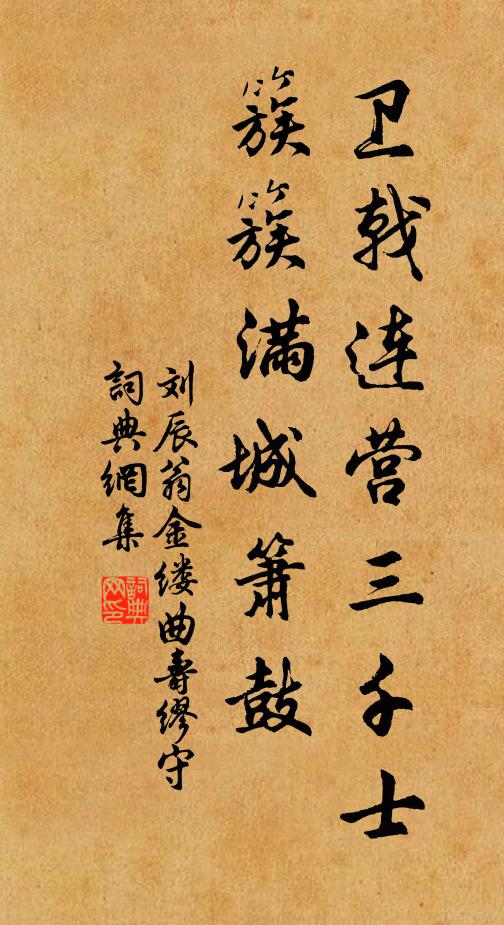 卫戟连营三千士
簇簇满城箫鼓
刘辰翁金缕曲寿缪守
詞典網集
詞典網印